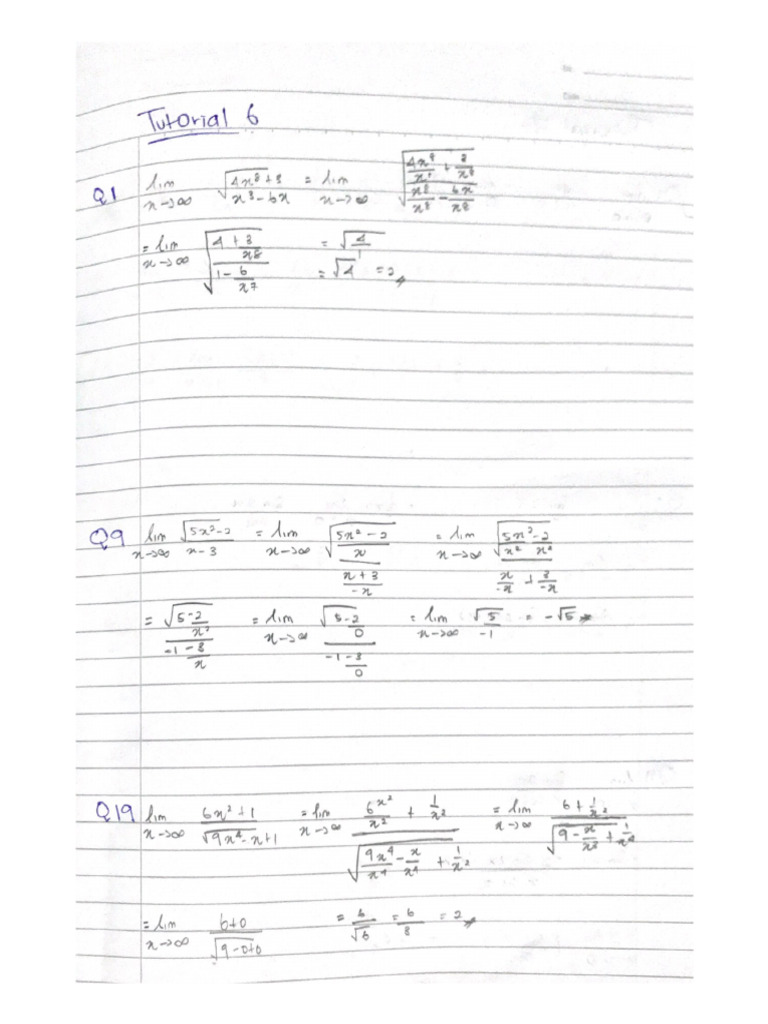 Tutorial 6
Q1 lim x→∞ √(4x⁸+3 / x⁸-6x) = lim x→∞ √((4x⁸/x⁸ + 3/x⁸) / (x⁸/x⁸ - 6x/x⁸))
= lim x→∞ √((4 + 3/x⁸) / (1 - 6/x⁷)) = √(4/1)
= √4 = 2
Q9 lim x→∞ √(5x²-2) / x-3 = lim x→∞ √(5x²-2 / x) / (x+3 / -x) = lim x→∞ √(5x²/x² - 2/x²) / (x/-x + 3/-x)
= √(5 - 2/x²) / (-1 - 3/x) = lim x→∞ √(5 - 2/0) / (-1 - 3/0) = lim x→∞ √5 / -1 = -√5
Q19 lim x→∞ 6x²+1 / √(9x⁴-x+1) = lim x→∞ (6x²/x² + 1/x²) / √(9x⁴/x⁴ - x/x⁴ + 1/x²) = lim x→∞ (6 + 1/x²) / √(9 - x/x³ + 1/x⁴)
= lim x→∞ 6+0 / √(9-0+0) = 6/√6 = 6/3 = 2